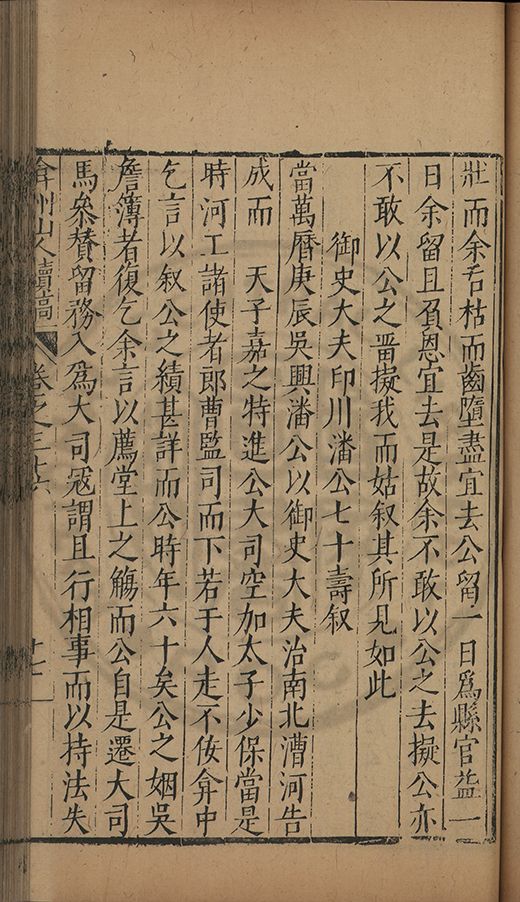 壯而余舌枯而齒墮盡宜去公留一日爲縣官益一
日余留且負恩宜去是故余不敢以公之去擬公亦
不敢以公之晋擬我而姑叙其所見如此
御史大夫印川潘公七十壽叙
當萬曆庚辰吳興潘公以御史大夫治南北漕河告
成而　天子嘉之特進公大司空加太子少保當是
時河工諸使者郎曹監司而下若于人走不佞弇中
乞言以叙公之績甚詳而公時年六十矣公之姻吳
詹簿者復乞余言以薦堂上之觴而公自是遷大司
馬叅賛留務入爲大司寇謂且行相事而以持法失
弇州山人續稿
卷之三十六
十七